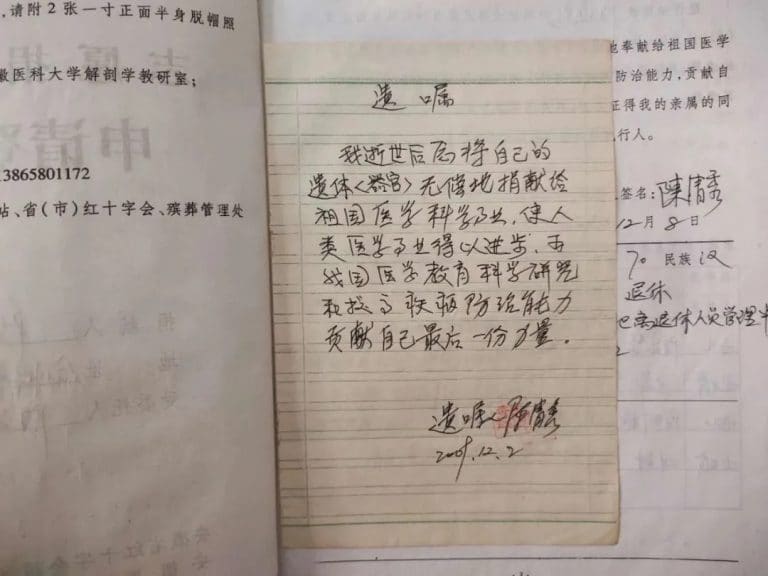 ,请附2张一寸正面半身脱帽照
徽医科大学解剖学教研室;
申请
13865801172
站、省(市)红十字会、殡葬管理处
遗嘱
我逝世后愿将自己的
遗体〈器官〉无偿地捐献给
祖国医学科学事业,使人
类医学事业得以进步,为
我国医学教育科学研究
和提高疾病防治能力
贡献自己最后一份力量。
遗嘱人
陈清秀
12.2
地奉献给祖国医学
防治能力,贡献自
证得我的亲属的同
行人。
签名:陈清秀
12月8日
70 民族 汉
退休
离退休人员管理